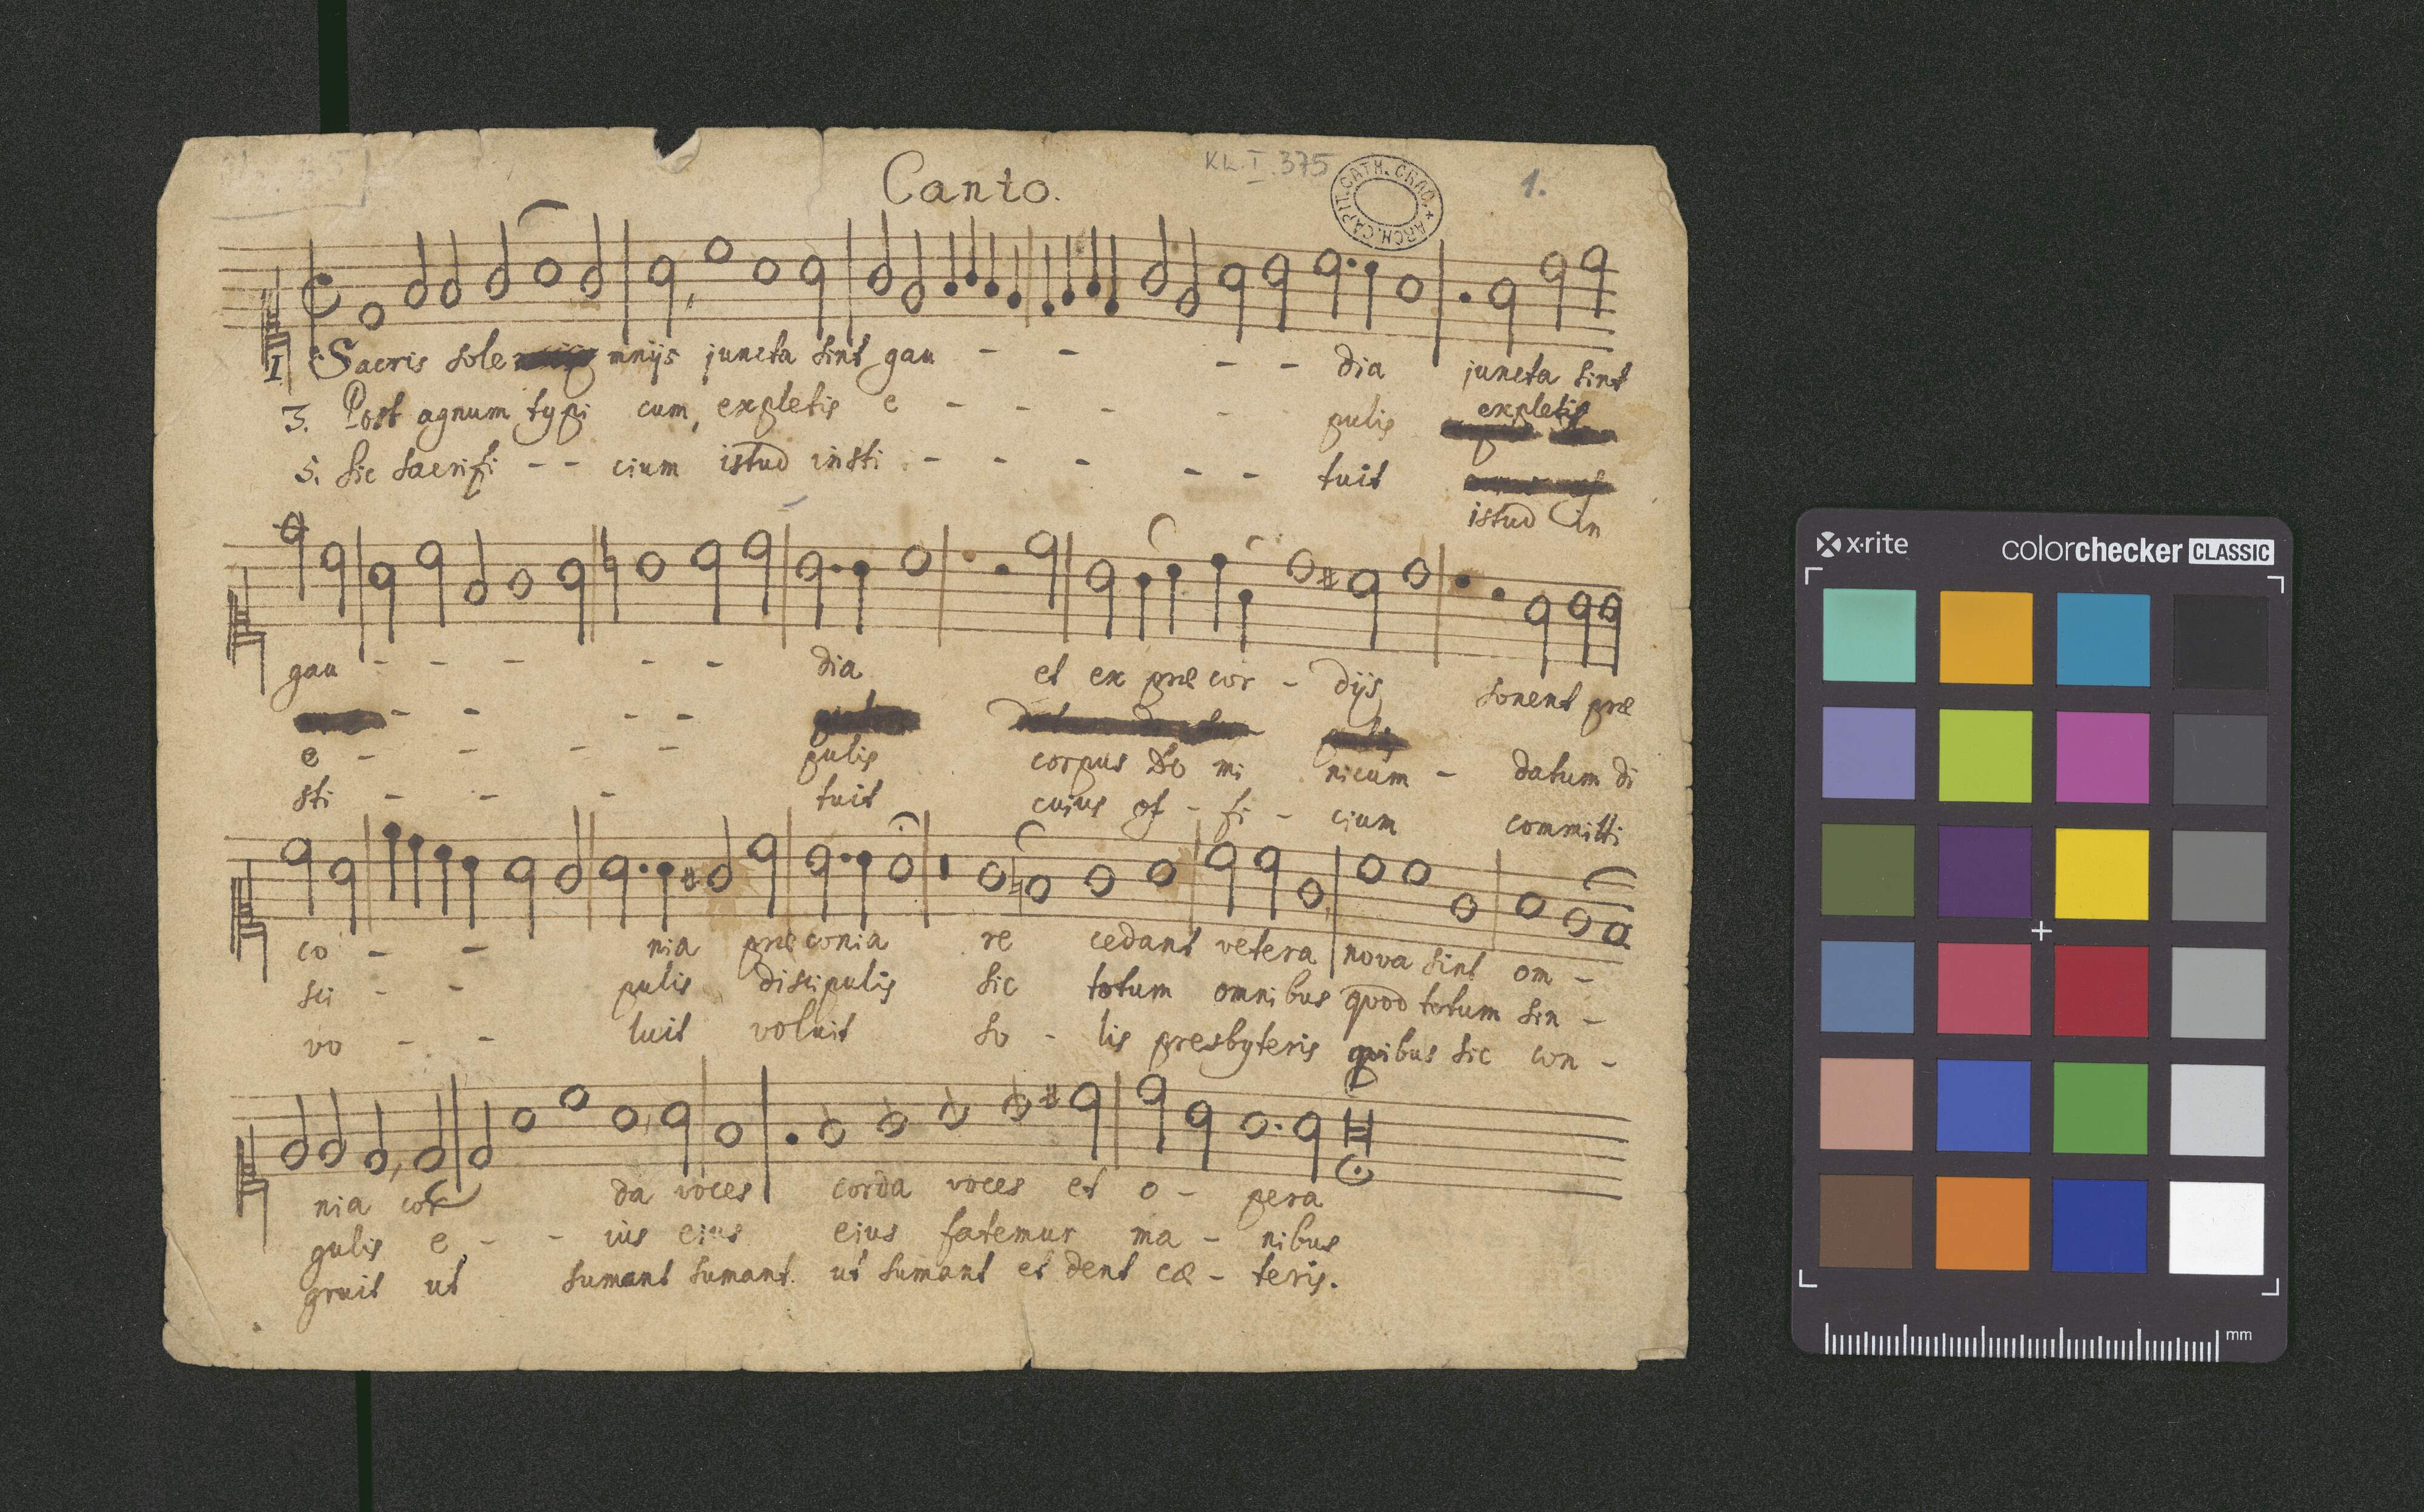 Canto.
KL.I.375
ARCH. CAPIT. CATH. CRAC.
1.
I Sacris sole mnijs juncta sint gau - - - - dia juncta sint
3. Post agnum typi cum, expletis e - - - - pulis expletis
5. Sic sacrifi - - cium istud insti - - - - - tuit
istud in
gau - - - - - dia et ex præ cor - dijs sonent præ
- - - -
e - - - - pulis corpus Do mi nicum - datum di
sti - - - tuit cuius of - fi - cium committi
co - - nia præconia re cedant vetera nova sint om -
sci - - pulis discipulis sic totum omnibus quod totum sin -
vo - - luit voluit so - lis presbyteris quibus sic con -
nia cor da voces corda voces et o - pera
gulis e - - ius eius eius fatemur ma - nibus
gruit ut sumant sumant ut sumant et dent cæ - teris.
x·rite
colorchecker CLASSIC
mm